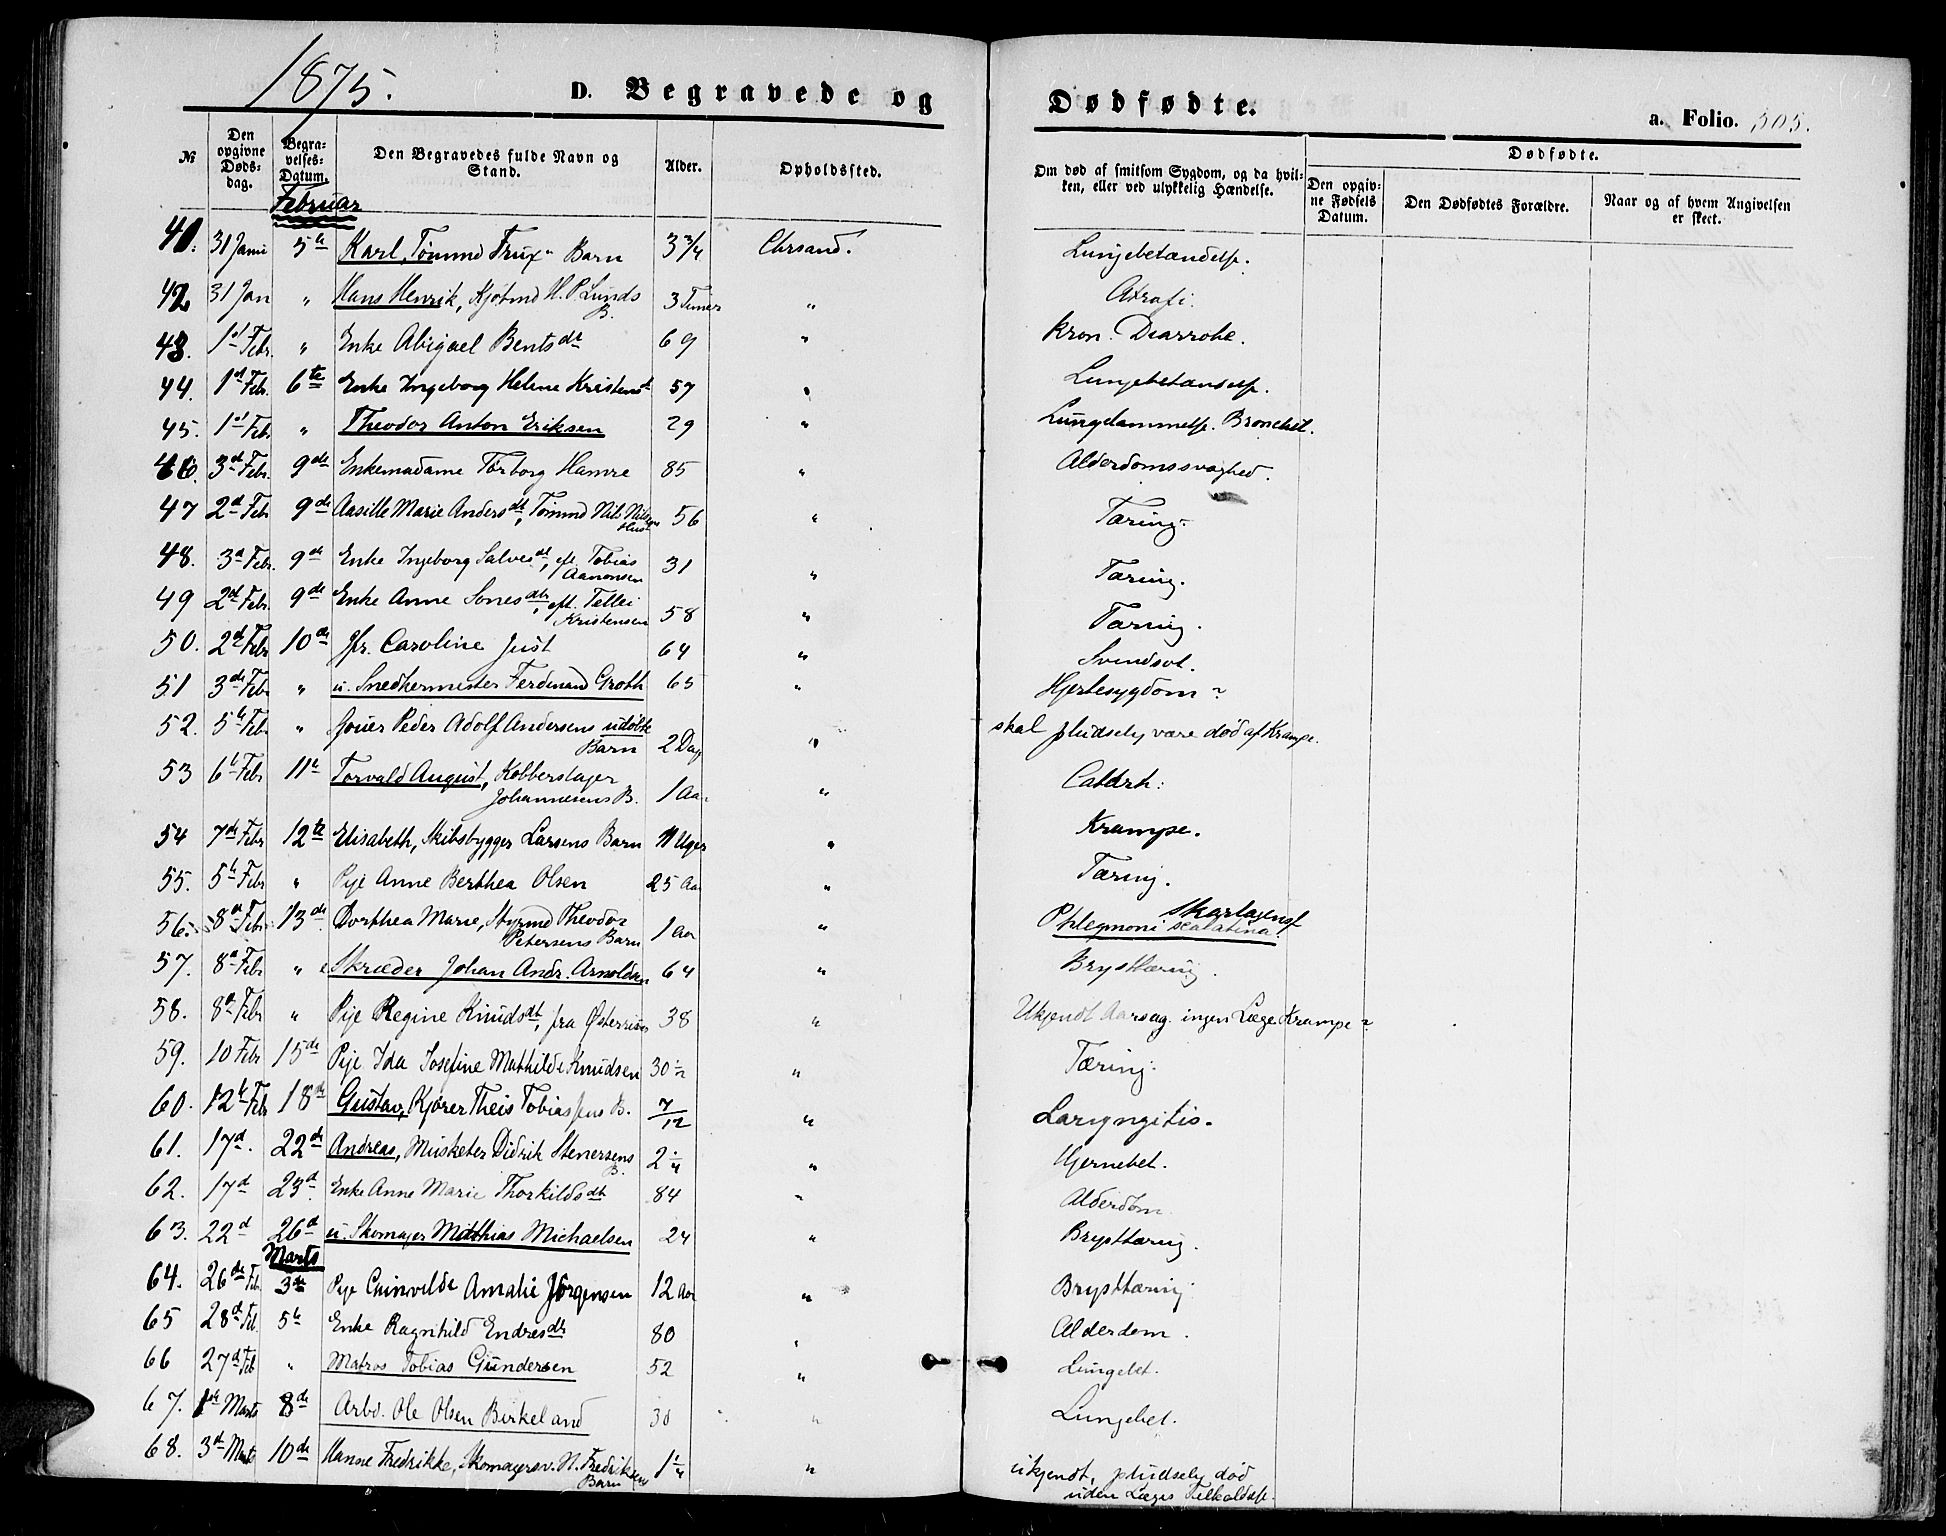 1875.
D. Begravede og Dødfødte.
a. Folio. 305.
№
Den opgivne Døds-dag.
Begra-velses-Datum.
Den Begravedes fulde Navn og Stand.
Alder.
Opholdssted.
Om død af smitsom Sygdom, og da hvil-ken, eller ved ulykkelig Hændelse.
Dødfødte.
Den opgiv-ne Fødsels Datum.
Den Dødfødtes Forældre.
Naar og af hvem Angivelsen er skeet.
Februar
41. 31 Janu 5te Karl, Tømmd Trux Barn 3 3/4 Chrsand. Lungebetændelse.
42 31 Jan " Hans Henrik, Kjøbmd H. P. Lunds B. 3 Timer " Atrofi.
43. 1st Febr. " Enke Abigael Bentsdt 69 " kron. Diarrohe.
44. 1st Feb. 6te Enke Ingeborg Helene Kristensdt 57 " Lungebetændelse.
45. 1st Feb " Theodor Anton Eriksen 29 " Lungelammelse. Bronchit.
46. 3d Febr. 9de Enkemadame Torborg Hamre 85 " Alderdomssvaghed.
47 2d Febr 9de Aasille Marie Andersdt, Tømmd Nils Nilsens Hust. 56 " Tæring.
48. 3d Febr. 9de Enke Ingeborg Salvesdt, eft. Tobias Aanonsen 31 " Tæring.
49 2d Febr. 9de Enke Anne Sonesdtr, eft. Tellei Kristensen 58 " Tæring.
50. 2d Febr 10de Jfr. Caroline Just 64 " Svindsot.
51 3de Febr " u. Snedkermester Ferdinand Groth 65 " Hjertesygdom
52. 5te Febr " Gouer Peder Adolf Andersens udøbte Barn 2 Dag " skal pludselig være død af Krampe.
53 6te Febr 11te Torvald August, Kobberslager Johannesens B. 1 Aar " Catarh:
54 7de Febr 12te Elisabeth, Skibsbygger Larsens Barn 11 Uger " Krampe.
55. 5te Febr " Pige Anne Berthea Olsen 25 Aar " Tæring.
56. 8de Febr 13de Dorthea Marie, Styrmd Theodor Petersens Barn 1 Aar " Phlegmoni scalatina. Skarlagensf
57. 8de Febr " Skræder Johan Andr. Arnoldsen 64 " Brysttæring.
58. 8de Febr " Pige Regine Knudsdt, fra Østerriisør 38 " Ukjendt Aarsag. ingen Læge Krampe
59. 10 Febr 15de Pige Ida Josefine Mathilde Knudsen 30 1/2 " Tæring.
60. 12te Feb 18de Gustav, Kjører Theis Tobiassens B. 7/12 " Laryngitis.
61. 17d. 22de Andreas, Musketer Didrik Stenersens B. 2 1/4 " Hjernebet.
62. 17d 23d. Enke Anne Marie Thorkildsdt 84 " Alderdom
63. 22d 26d u. Skomager Mathias Michaelsen 24 " Brysttæring.
Marts
64. 26de Feb. 3de Pige Gunvelde Amalie Jørgensen 12 Aar " Brysttæring
65 28d Feb. 5te Enke Ragnhild Endresdtr 80 " Alderdom.
66 27d Feb " Matros Tobias Gundersen 52 " Lungebet.
67. 1ste Marts 8de Arbd. Ole Olsen Birkeland 30 " Lungebet.
68. 3d Marts 10de Hanne Fredrikke, Skomagersv. N. Fredriksens Barn 1 1/4 " ukjendt, pludselig død uden Læges Tilkaldelse.